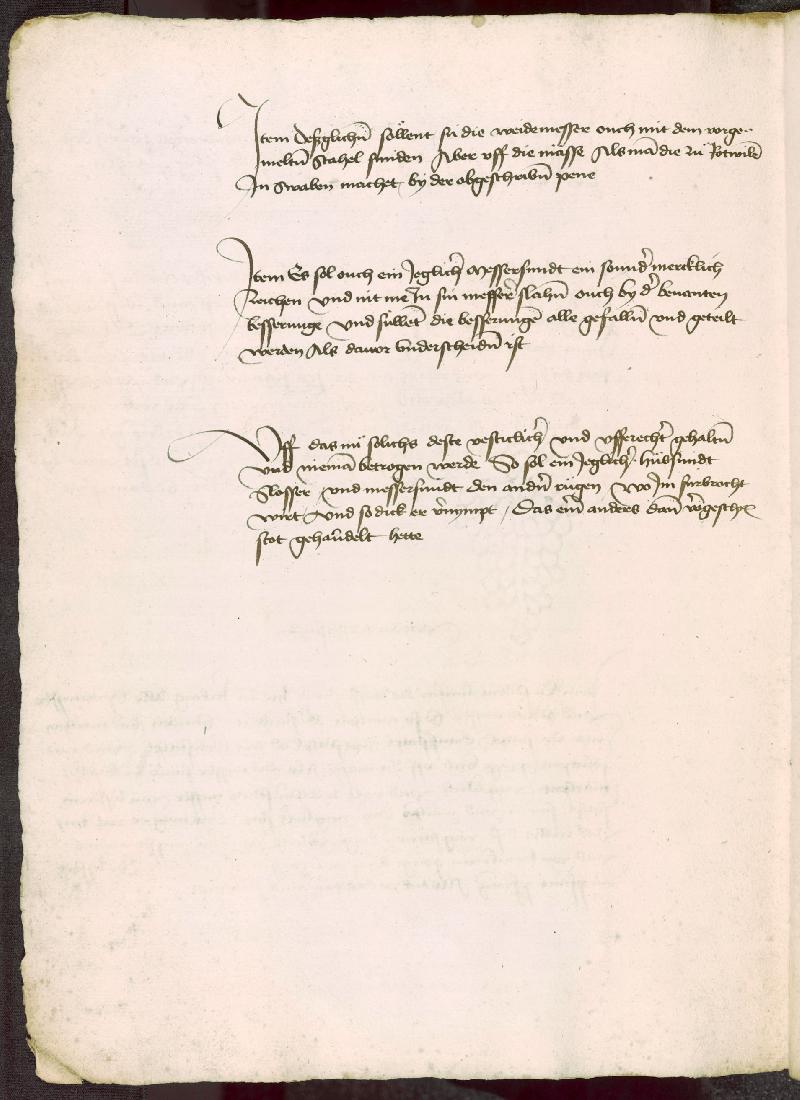 Item deßglichen̄ sollent si die weidemesser ouch mit dem vorge-
melten̄ Stahel smiden Aber vff die masse Als mā die zu Rotwile
In Swaben machet, by der obgeschribn̄ pene
Item Es sol ouch ein Jeglicher Messersmidt ein sunder mercklich
zeichen vnd nit me In sin messere slahn̄ ouch by der benanten
besserunge vnd sullent die besserungē alle gefalln̄ vnd geteilt
werden Als dauor vnderscheidn̄ ist
Vff das nu solichs deste vesticlicher vnd vffrechter gehaltn̄
vnd niemā betrogen werde So sol ein Jeglicher hubsmidt
Slosser vnd messersmidt den andn̄ rugen wo Im furbracht
wirt vnd so dick er vernympt, Das einer anders dan vorgesch
stot gehandelt hette